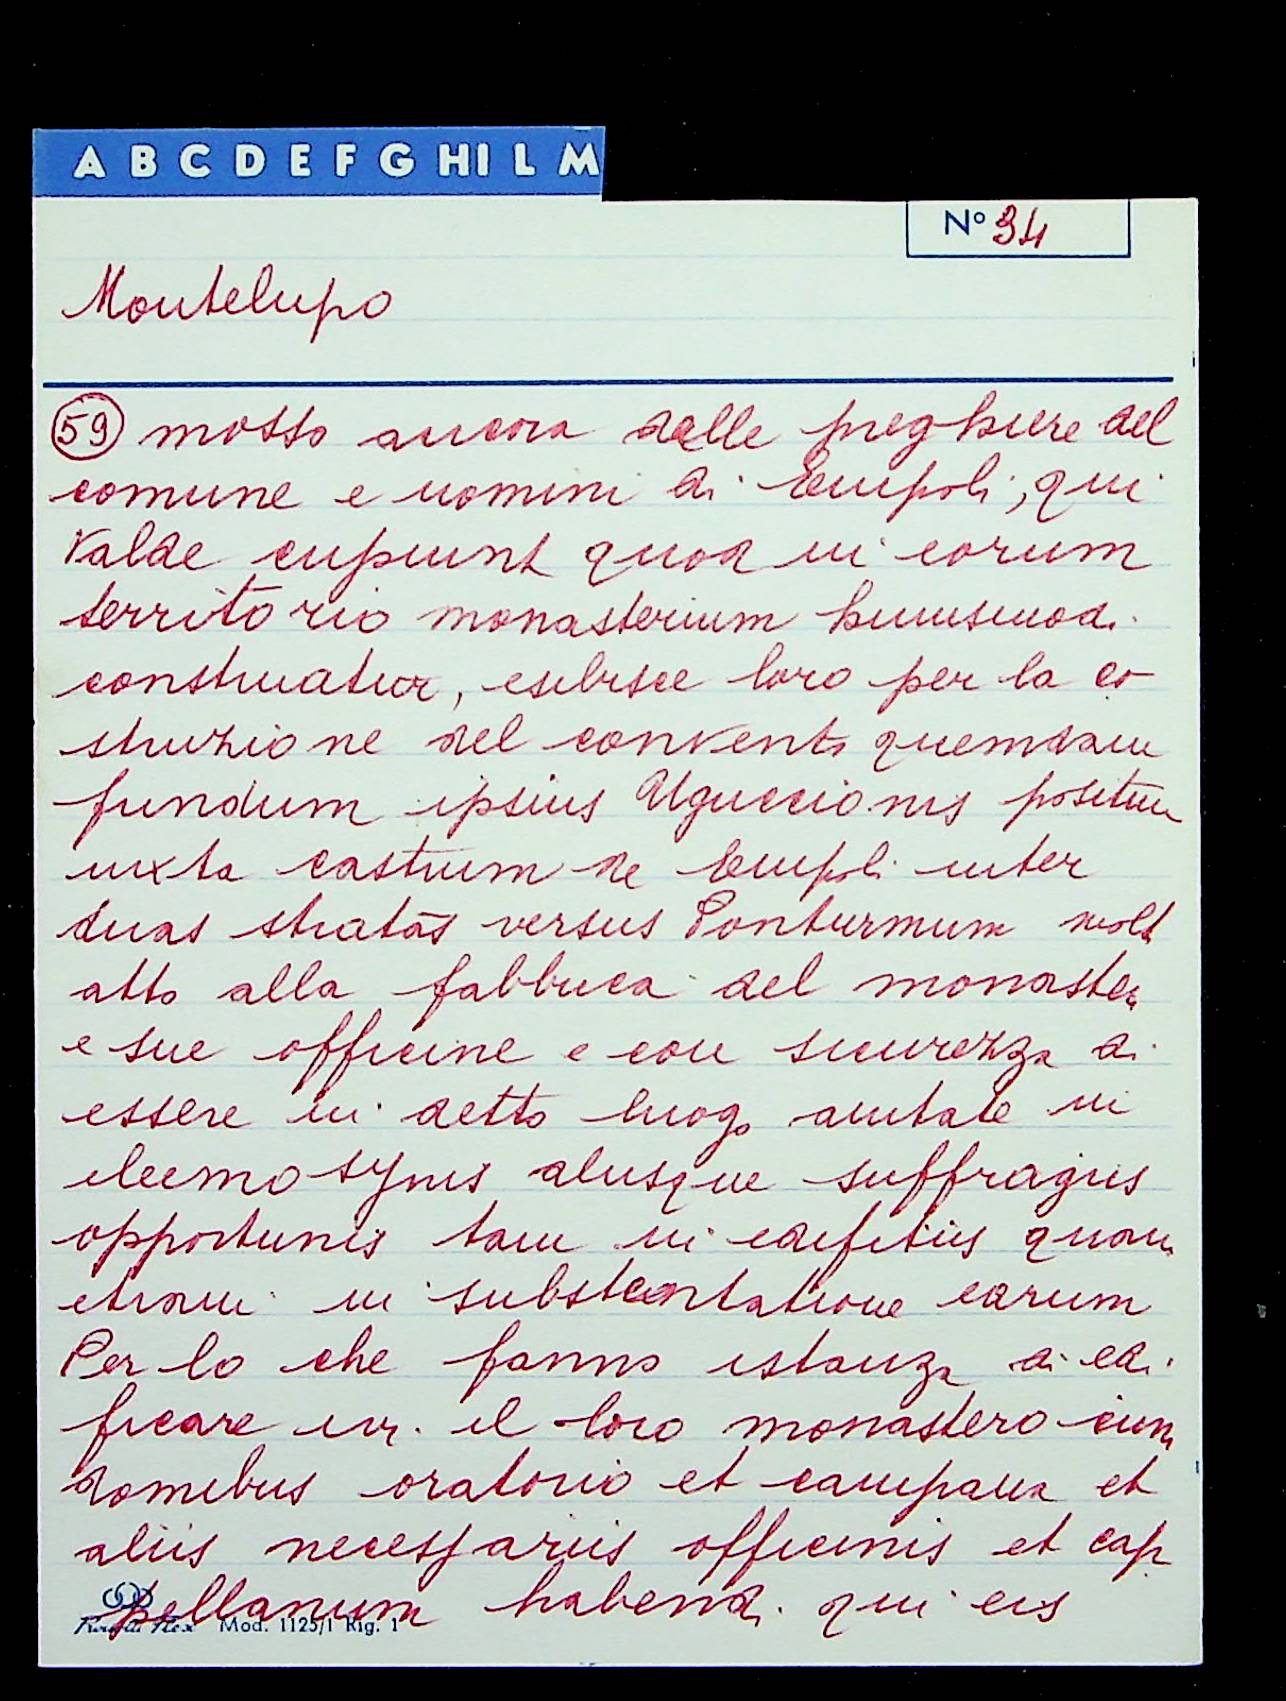 A B C D E F G HI L M
N° 34
Montelupo
59 mosso ancora dalle preghiere del
comune e uomini di Empoli, qui
valde cupiunt quod in eorum
territorio monasterium huiusmodi
construatur, esibisce loro per la co
struzione del convento quemdam
fundum ipsius Uguccionis positum
iuxta castrum de Empoli inter
duas stratas versus Ponturmum molt
atto alla fabbrica del monaster
e sue officine e con sicurezza di
essere in detto luogo aiutate in
eleemosynis aliisque suffragiis
opportunis tam in edifitiis quam
etiam in substentatione earum
Per lo che fanno istanza di edi
ficare ivi il loro monastero cum
domibus oratorio et campana et
aliis necessariis officinis et cap
pellanum habendi qui eis
Mod. 1125/1 Rig. 1